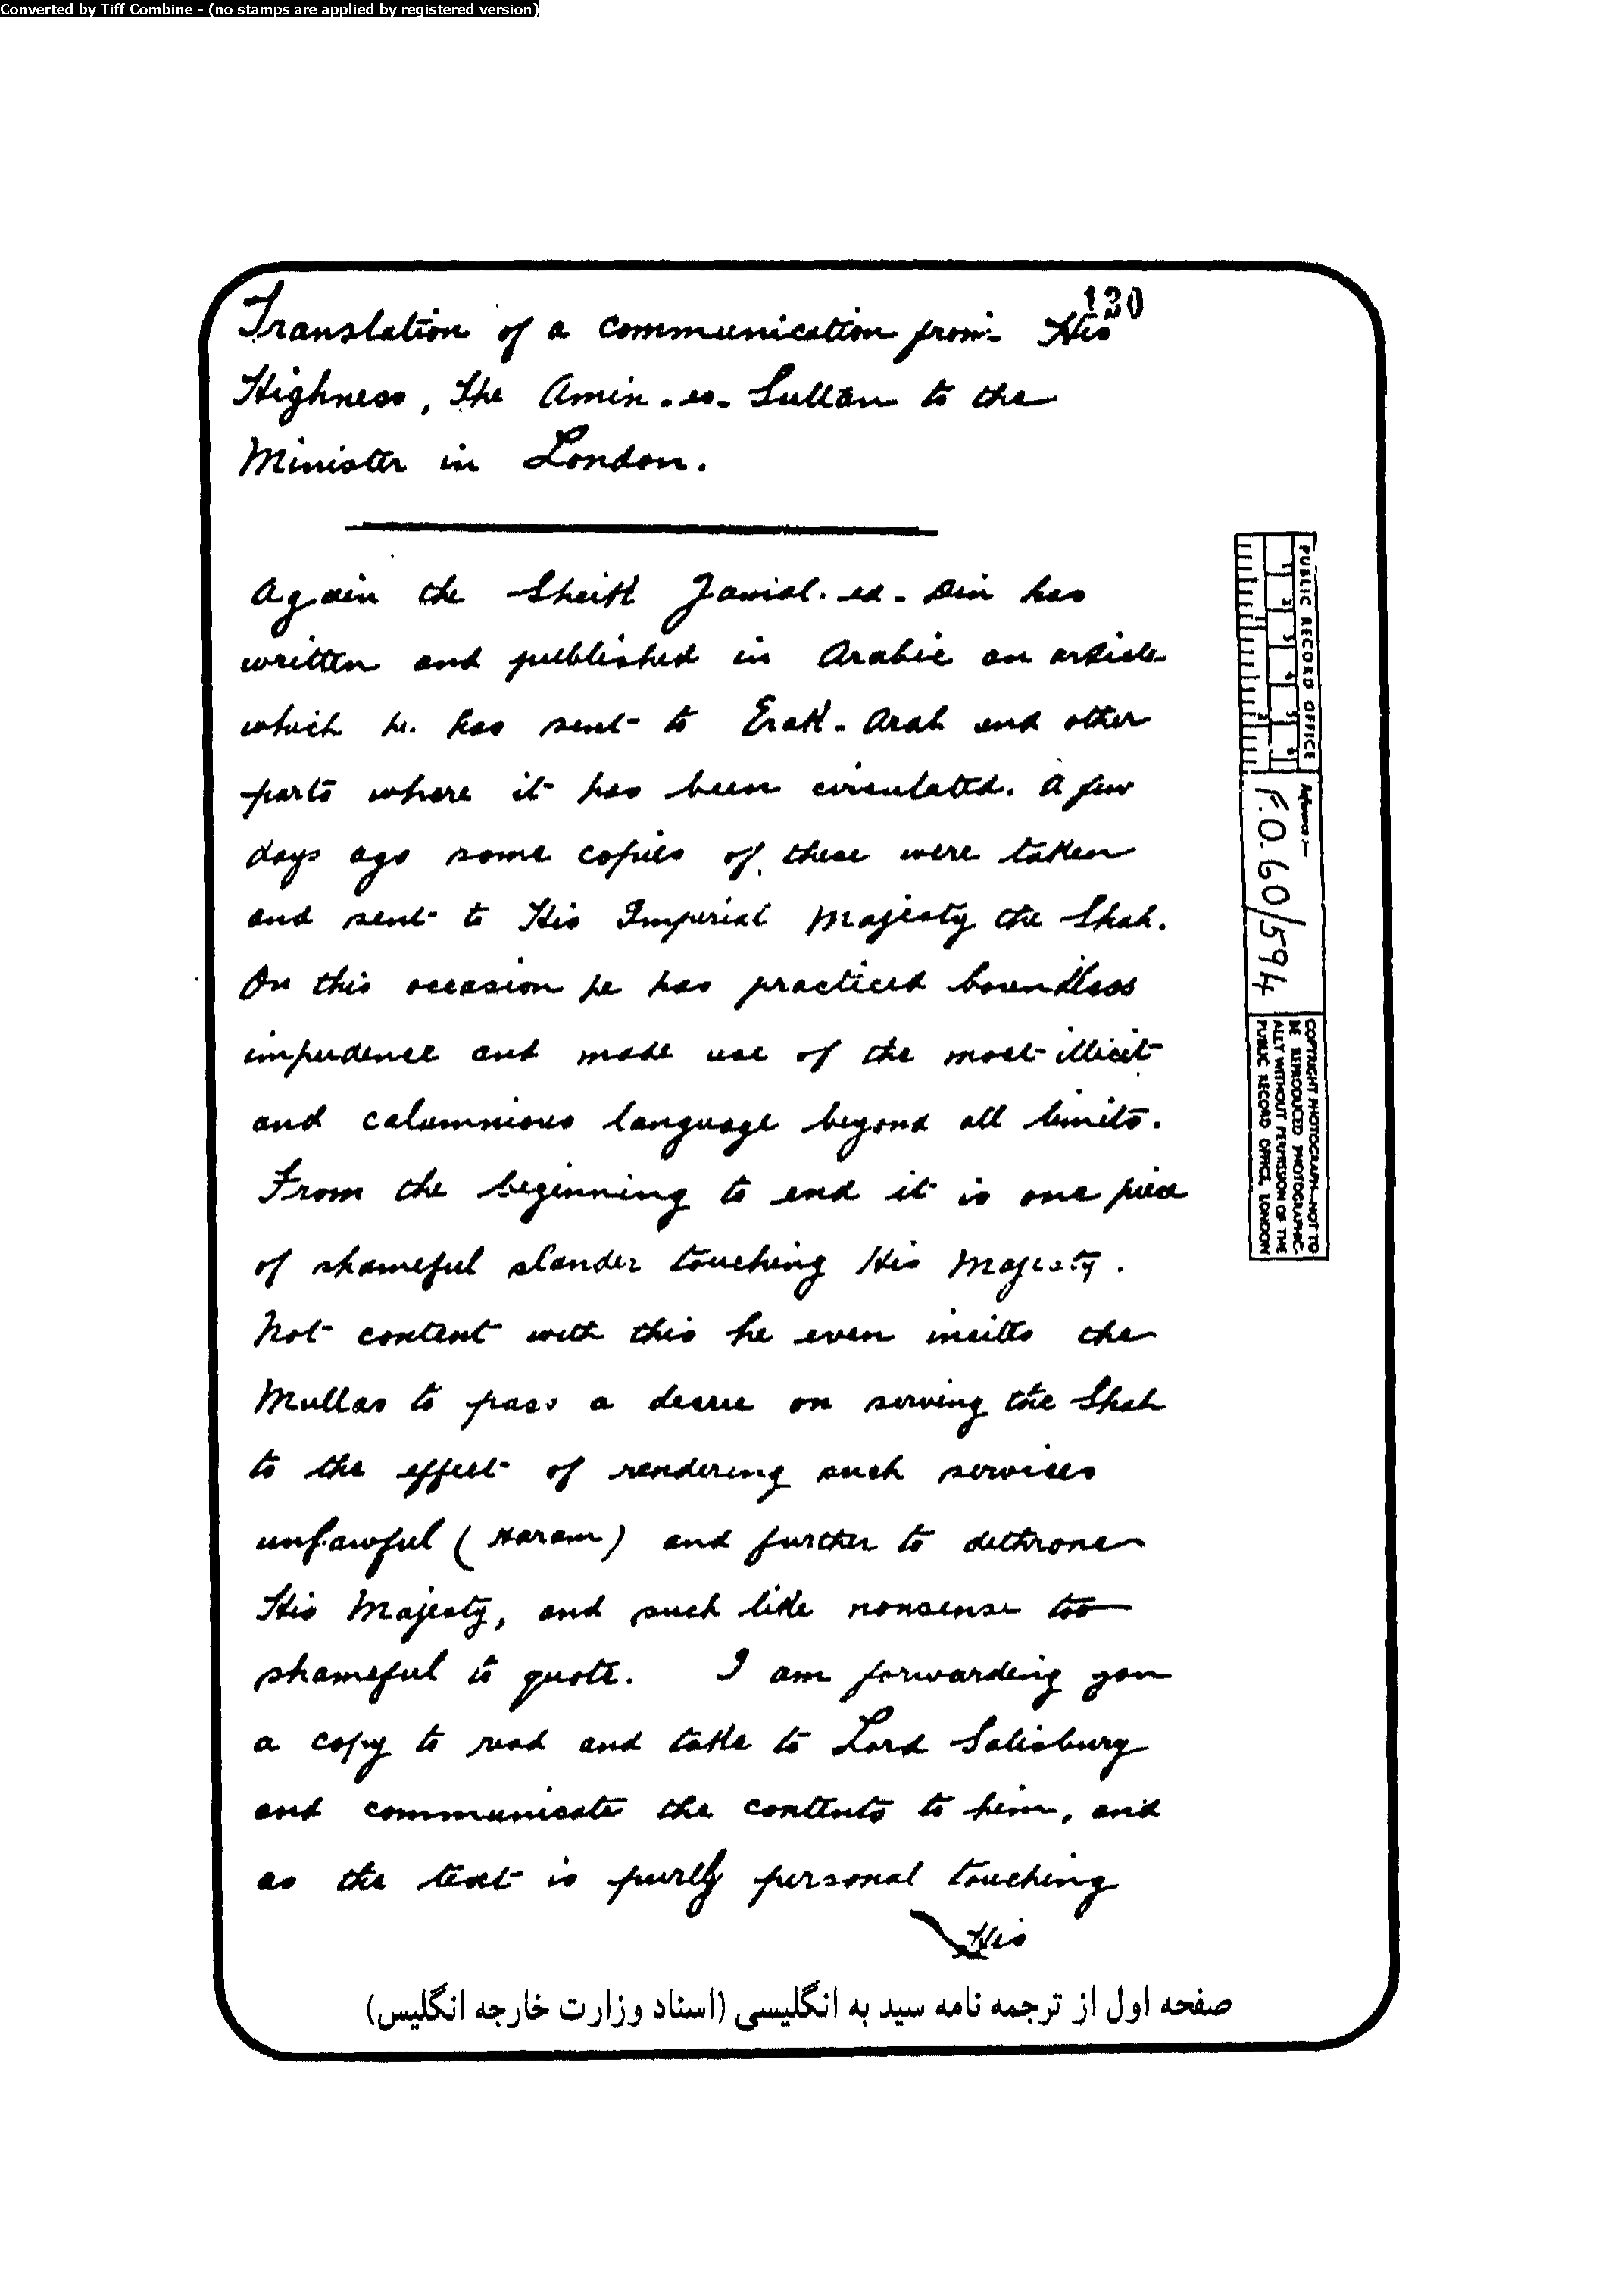 Converted by Tiff Combine - (no stamps are applied by registered version)
130
Translation of a communication from His
Highness, The Amin-es-Sultan to the
Minister in London.
Again the Sheikh Jamal-ed-Din has
written and published in Arabic an article
which he has sent to Erak-Arab and other
parts where it has been circulated. A few
days ago some copies of these were taken
and sent to His Imperial Majesty the Shah.
On this occasion he has practiced boundless
impudence and made use of the most illicit
and calumnious language beyond all limits.
From the beginning to end it is one piece
of shameful slander touching His Majesty.
Not content with this he even incites the
Mullas to pass a decree on serving the Shah
to the effect of rendering such services
unlawful (Haram) and further to dethrone
His Majesty, and such like nonsense too
shameful to quote. I am forwarding you
a copy to read and take to Lord Salisbury
and communicate the contents to him, and
as the text is purely personal touching
His
PUBLIC RECORD OFFICE
Reference:-
F.O. 60/594
COPYRIGHT PHOTOGRAPH—NOT TO
BE REPRODUCED PHOTOGRAPHIC-
ALLY WITHOUT PERMISSION OF THE
PUBLIC RECORD OFFICE, LONDON
صفحه اول از ترجمه نامه سید به انگلیسی (اسناد وزارت خارجه انگلیس)